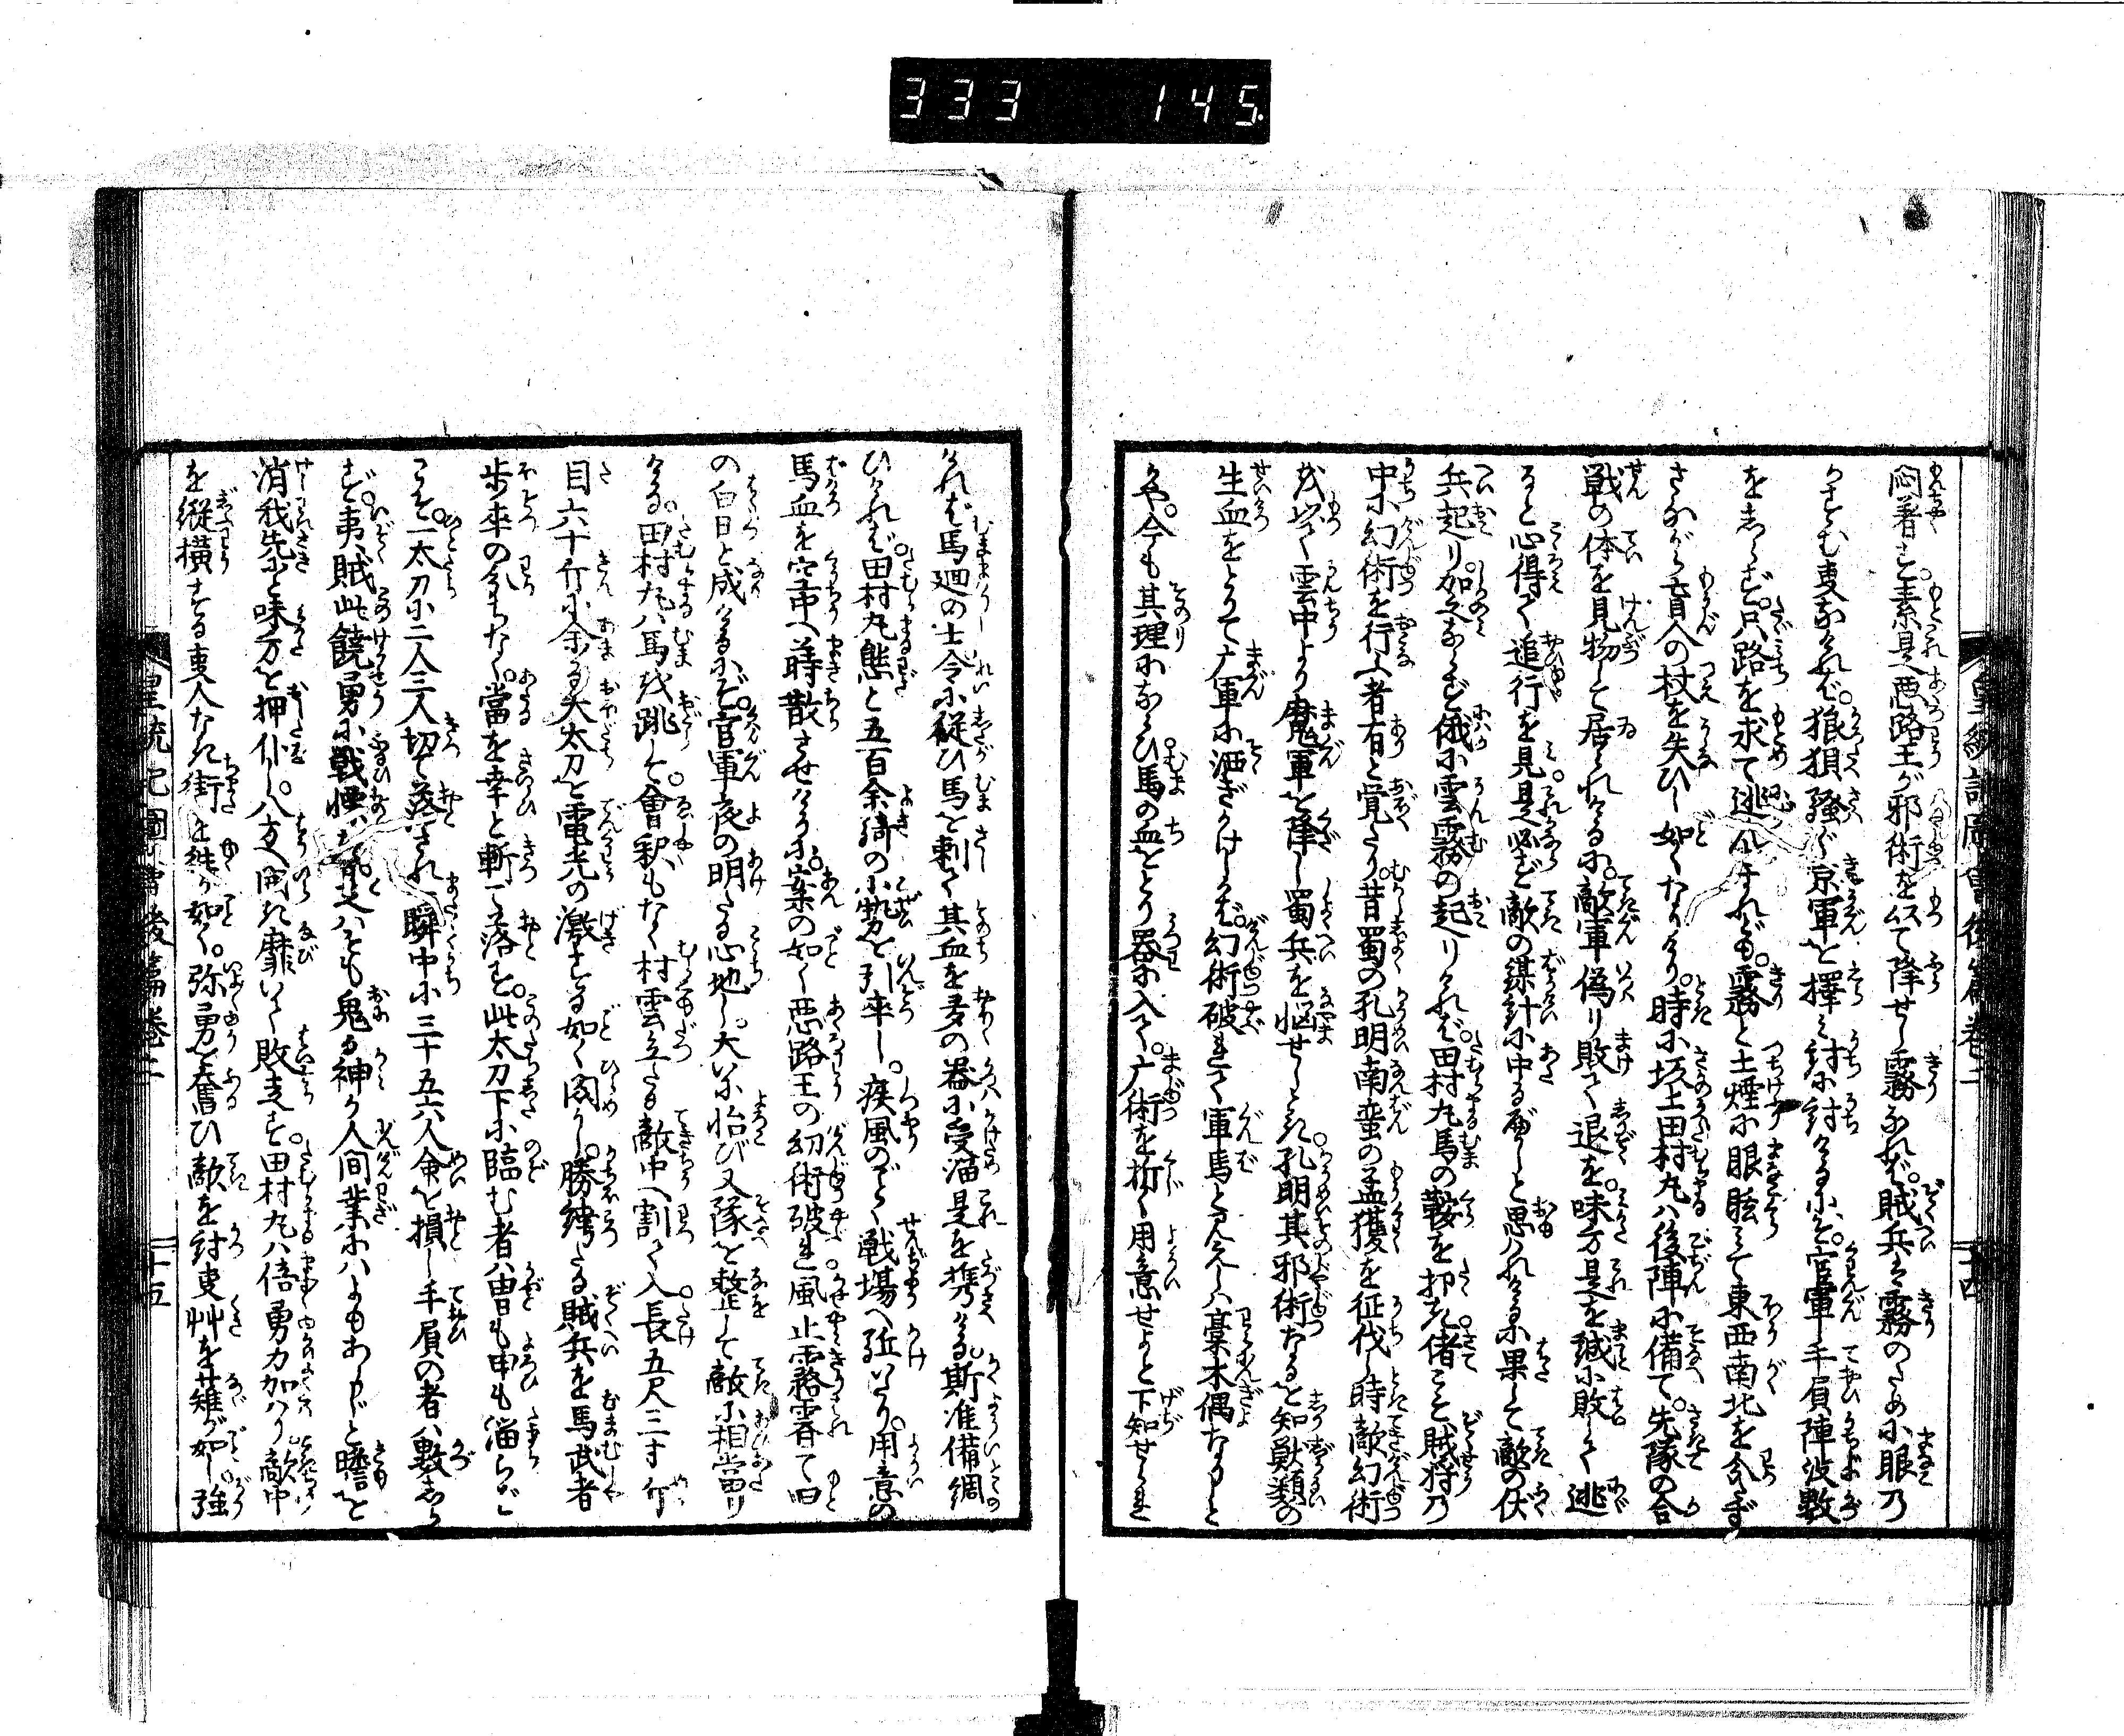 333 145
皇統記圖會後篇卷二 十四
悶着す。素是悪路王が邪術を以て降せし霧なれば。賊兵は霧のために眼の
くらむ事なければ。狼狽騒ぐ京軍を擇み討に討けるにぞ。官軍手負陣没数
をしらず。只路を求て逃んすれども。霧と土煙に眼眩みて東西南北を分たず
さながら盲人の杖を失ひし如くなりけり。時に坂上田村丸ハ後陣に備て。先隊の合
戦の体を見物して居られけるに。敵軍偽り敗て退を。味方是を誠に敗して逃
ると心得て追行を見。是必ず敵の謀計に中るべしと思ハれけるに果して敵の伏
兵起り。加之ならず俄に雲霧の起りければ。田村丸馬の鞍を拍た。偖こそ賊将の
中に幻術を行ふ者有と覚たり。昔蜀の孔明南蛮の孟獲を征伐し時敵幻術
を以て雲中より魔軍を降し蜀兵を悩せしに。孔明其邪術なるを知獣類の
生血をとりて广軍に洒ぎかけしかば。幻術破れて軍馬と見へしハ藁木偶なりしと
かや。今も其理にならひ馬の血をとり器に入て。广術を折く用意せよと下知せられ
ければ馬廻の士令に従ひ馬を刺て其血を多の器に受溜是を携ける。斯准備調
ひければ。田村丸態と五百余騎の小勢を引率し。疾風のごく戦場へ駈いたり。用意の
馬血を空中へ蒔散させけるに。案の如く悪路王の幻術破れ。風止霧霽て旧
の白日と成けるにぞ。官軍夜の明たる心地し。大に怡び又隊を整して敵に相當り
ける。田村丸ハ馬を跳して。會釈もなく村雲立たる敵中へ割て入。長五尺三寸斤
目六十斤に余る大太刀を電光の激する如く閃かし。勝誇たる賊兵を馬武者
歩卒の分ちなく。當を幸と斬て落す。此太刀下に臨む者ハ冑も申も溜らばこ
こそ。一太刀に二人三人切て落され。瞬中に三十五六人命を損し手負の者ハ数しら
ず。夷賊此饒勇に戦慄。是ハそも鬼か神か人間業にハよもあらじと膽を
消我先にと味方を押仆し。八方へ開き靡いて敗走す。田村丸ハ倍勇力加ハり。敵中
を縦横する事人なき街を往が如く。弥勇を奮ひ敵を討事艸を薙が如し。強
皇統記圖會後篇卷二 十五